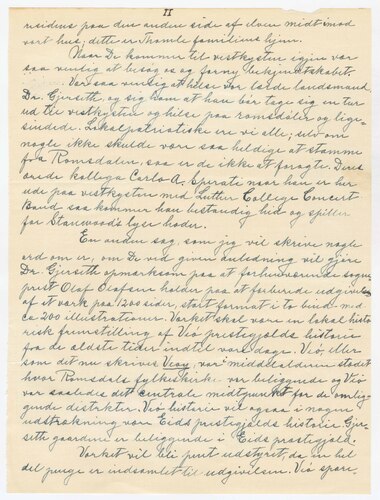 II
residens paa den anden side af elven midt imod
vort hus; dette er Thomle familiens hjem.
Naar De kommer til vestkysten igjen var
saa venlig at besøg os og forny bekjendtskabet.
Vær saa venlig at hilse vor lærde landsmand,
Dr. Gjerseth, og sig ham at han bør tage sig en tur
ud til vestkysten og hilse paa romsdøler og lige-
sindede. Lokalpatriotiske ere vi alle; selv om
nogle ikke skulde være saa heldige at stamme
fra Romsdalen, saa er de ikke at foragte. Deres
ærede kollega Carlo A. Sperati naar han er her
ude paa vestkysten med Luther College Concert
Band saa kommer han bestandig hid og spiller
for Stanwoods lyse hoder.
En anden sag, som jeg vil skrive nogle
ord om er, om De ved given anledning vil gjøre
Dr. Gjerseth opmerksom paa at forhenværende sogne-
prest Olaf Olafsen holder paa at forberede udgivelsen
af et verk paa 1200 sider, stort format i to bind med
ca 200 illustrationer. Verket skal være en lokal histo-
risk fremstilling af Veø prestegjelds historie
fra de ældste tider indtil vore dage. Veø, eller
som det nu skrives Veøy, var i middelalderen stedet
hvor Romsdals fylkeskirke var beliggende og Veø
var saaledes det centrale midtpunkt for de omlig-
gende distrikter. Veø historie vil ogsaa i nogen
udstrekning være Eids prestegjelds historie. Gjer-
seth gaardene er beliggende i Eids prestegjeld.
Verket vil bli pent udstyrt, da en hel
del penge er indsamlet til udgivelsen. Veø spare-